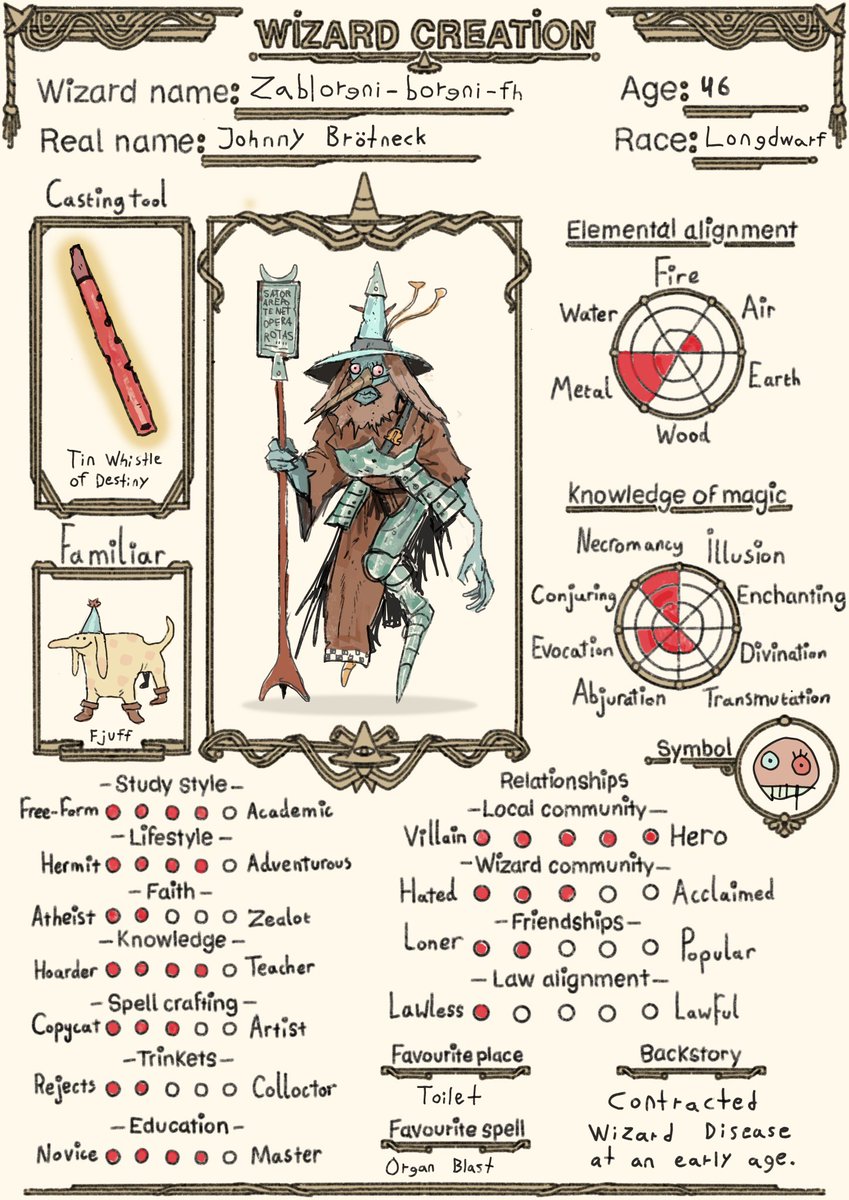 WIZARD CREATION
Wizard name: Zabloreni-boreni-fh
Age: 46
Real name: Johnny Brötneck
Race: Longdwarf
Casting tool
Tin Whistle
of Destiny
SATOR
AREPO
TENET
OPERA
ROTAS
Elemental alignment
Fire
Water
Air
Metal
Earth
Wood
Familiar
Fjuff
Knowledge of magic
Necromancy
Illusion
Conjuring
Enchanting
Evocation
Divination
Abjuration
Transmutation
Symbol
-Study Style-
Free-Form Academic
-Lifestyle-
Hermit Adventurous
-Faith-
Atheist Zealot
-Knowledge-
Hoarder Teacher
-Spell crafting-
Copycat Artist
-Trinkets-
Rejects Colloctor
-Education-
Novice Master
Relationships
-Local community-
Villain Hero
-Wizard community-
Hated Acclaimed
-Friendships-
Loner Popular
-Law alignment-
Lawless Lawful
Favourite place
Toilet
Favourite spell
Organ Blast
Backstory
Contracted
Wizard Disease
at an early age.